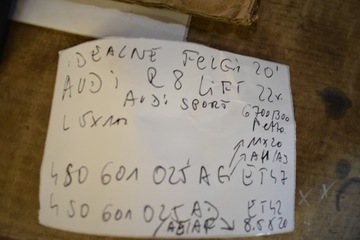 IDEALNE FELGI 20'
AUDI R8 LIFT 22r.
AUDI SPORT
6700/300
L 5X11
11X20
AH/AJ
4S0 601 025 AG ET47
4S0 601 025 AD ET42
/AE/AR 8.5X20